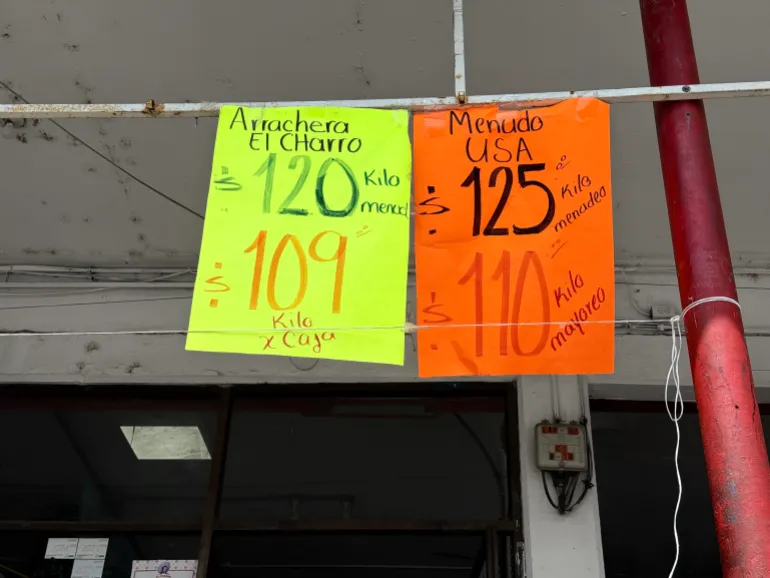 Arrachera
El CHarro
$ 120 Kilo
menud
$ 109
Kilo
x Caja
Menudo
USA
$ 125 Kilo
menudeo
$ 110 Kilo
mayoreo